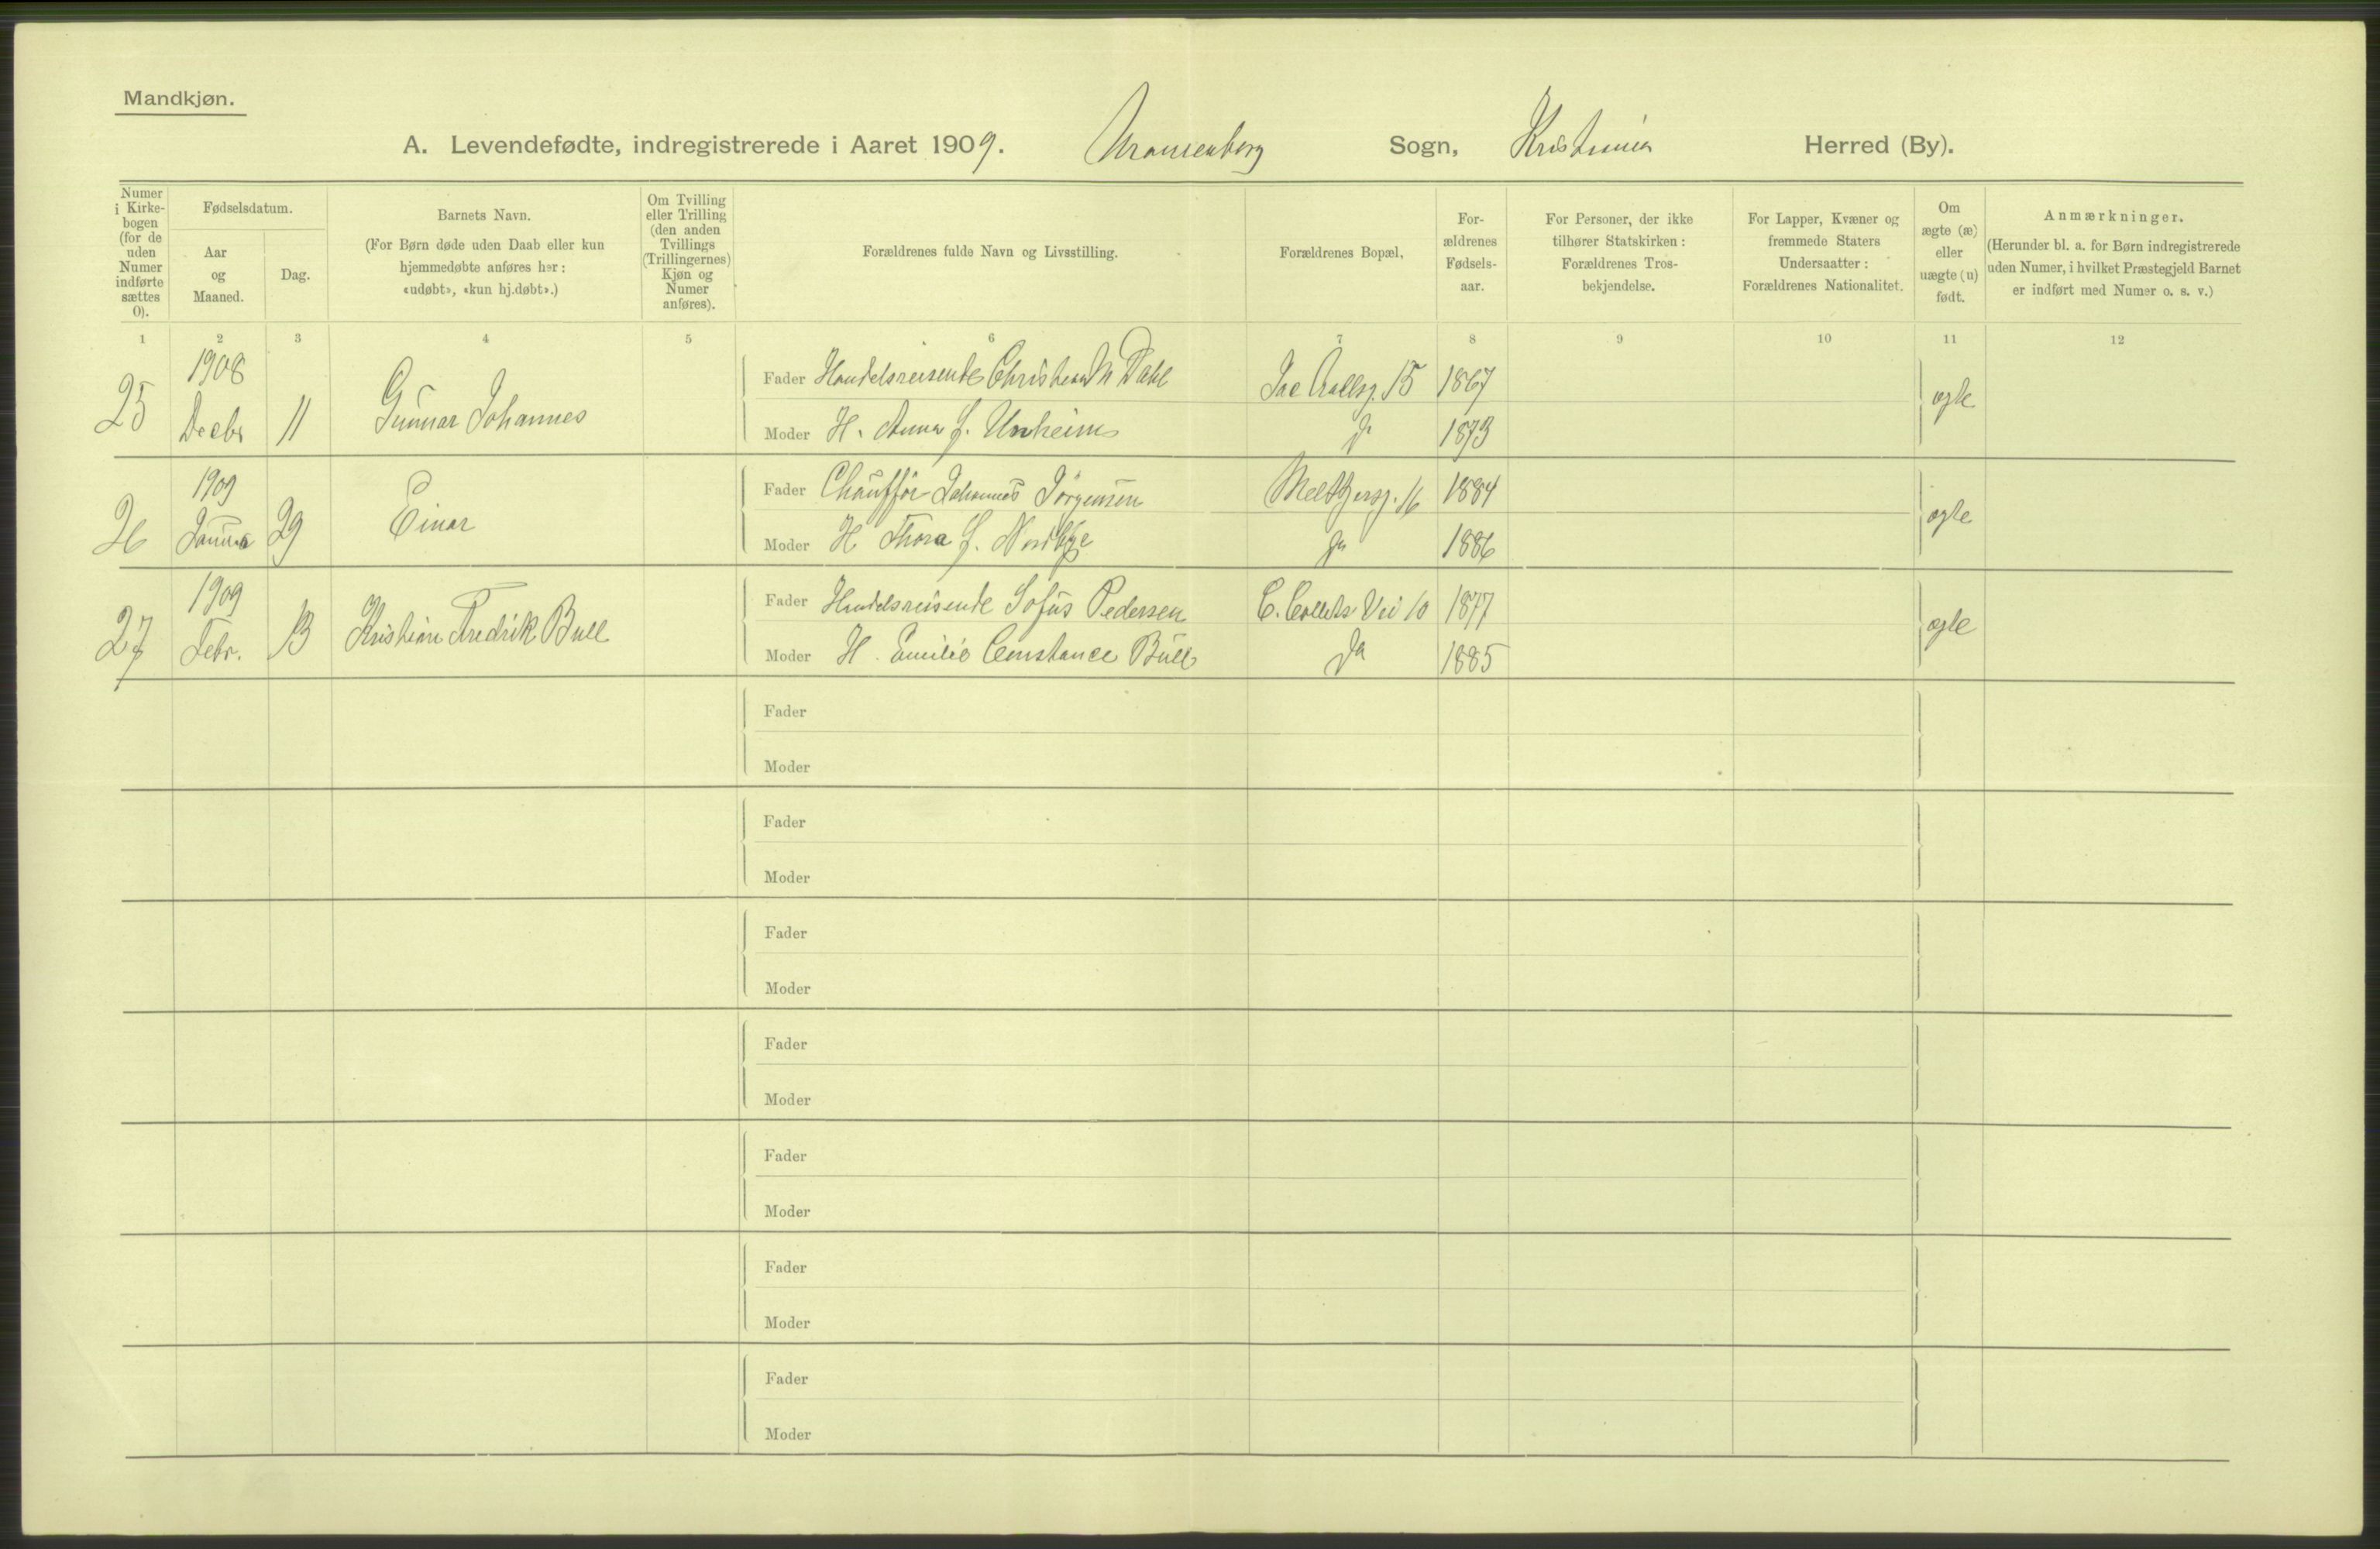 Mandkjøn.
A. Levendefødte, indregistrerede i Aaret 1909. Uranienborg Sogn, Kristiania Herred (By).
Numer i Kirkebogen (for de uden Numer indførte sættes 0).
Fødselsdatum.
Aar og Maaned.
Dag.
Barnets Navn.
(For Børn døde uden Daab eller kun hjemmedøbte anføres her: «udøbt», «kun hj.døbt».)
Om Tvilling eller Trilling (den anden Tvillings (Trillingernes) Kjøn og Numer anføres).
Forældrenes fulde Navn og Livsstilling.
Forældrenes Bopæl.
Forældrenes Fødselsaar.
For Personer, der ikke tilhører Statskirken: Forældrenes Trosbekjendelse.
For Lapper, Kvæner og fremmede Staters Undersaatter: Forældrenes Nationalitet.
Om ægte (æ) eller uægte (u) født.
Anmærkninger.
(Herunder bl. a. for Børn indregistrerede uden Numer, i hvilket Præstegjeld Barnet er indført med Numer o. s. v.)
1 2 3 4 5 6 7 8 9 10 11 12
25 1908 Decbr 11 Gunnar Johannes
Fader Handelsreisende Christian M Dahl Jac Aallsg. 15 1867 ægte
Moder H. Anna f. Unheim do 1873
26 1909 Januar 29 Einar
Fader Chauffør Johannes Jørgensen Meltzersg. 16 1884 ægte
Moder H Thora f. Nordbye do 1886
27 1909 Febr. 13 Kristian Fredrik Bull
Fader Handelsreisende Sofus Pedersen C. Colletts Vei 10 1877 ægte
Moder H. Emilie Constance Bull do 1885
Fader
Moder
Fader
Moder
Fader
Moder
Fader
Moder
Fader
Moder
Fader
Moder
Fader
Moder